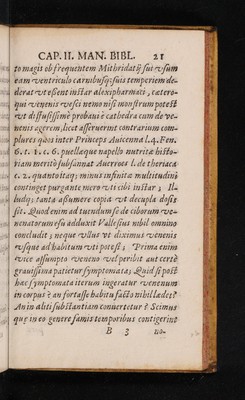 CAP. II. MAN. BIBL. 21
to magis ob frequentem Mithridatij sui vsum
eam ventriculo carnibusq; suis temperiem de-
derat vt essent instar alexipharmaci, cætero-
qui venenis vesci nemo nisi monstrum potest
vt diffusissimè probaui è cathedra cum de ve-
nenis agerem, licet asserverint contrarium com-
plures quos inter Princeps Auicenna l. 4. Fen.
6. t. 1. c. 6. puellaque napello nutrita histo-
riam meritò subsannat Auerroes l. de theriaca
c. 2. quanto itaq; minus infinita multitudini
continget purgante mero vti cibi instar; Il-
ludq; tanta assumere copia vt decupla dosis
sit. Quod enim ad tuendum se de ciborum ve-
nenatorum esu adduxit Vallesius nihil omnino
concludit; neque vllus vt diximus venenis
vsque ad habitum vti potest; Prima enim
vice assumpto veneno vel peribit aut certè
grauissima patietur symptomata; Quid si post
hæc symptomata iterum ingeratur venenum
in corpus è an fortasse habitu facto nihil lædet?
An in aliti substantiam conuertetur? Scimus
que in eo genere famis temporibus contigerint
B 3 no.